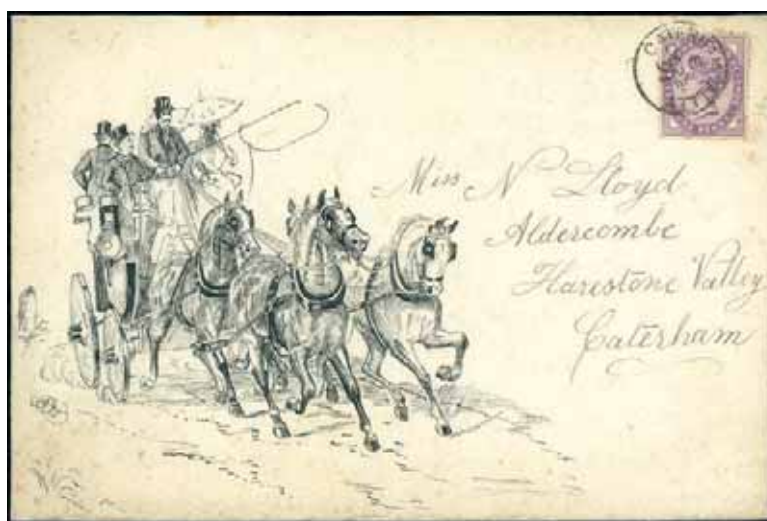 Miss N Lloyd
Aldercombe
Harestone Valley
Caterham